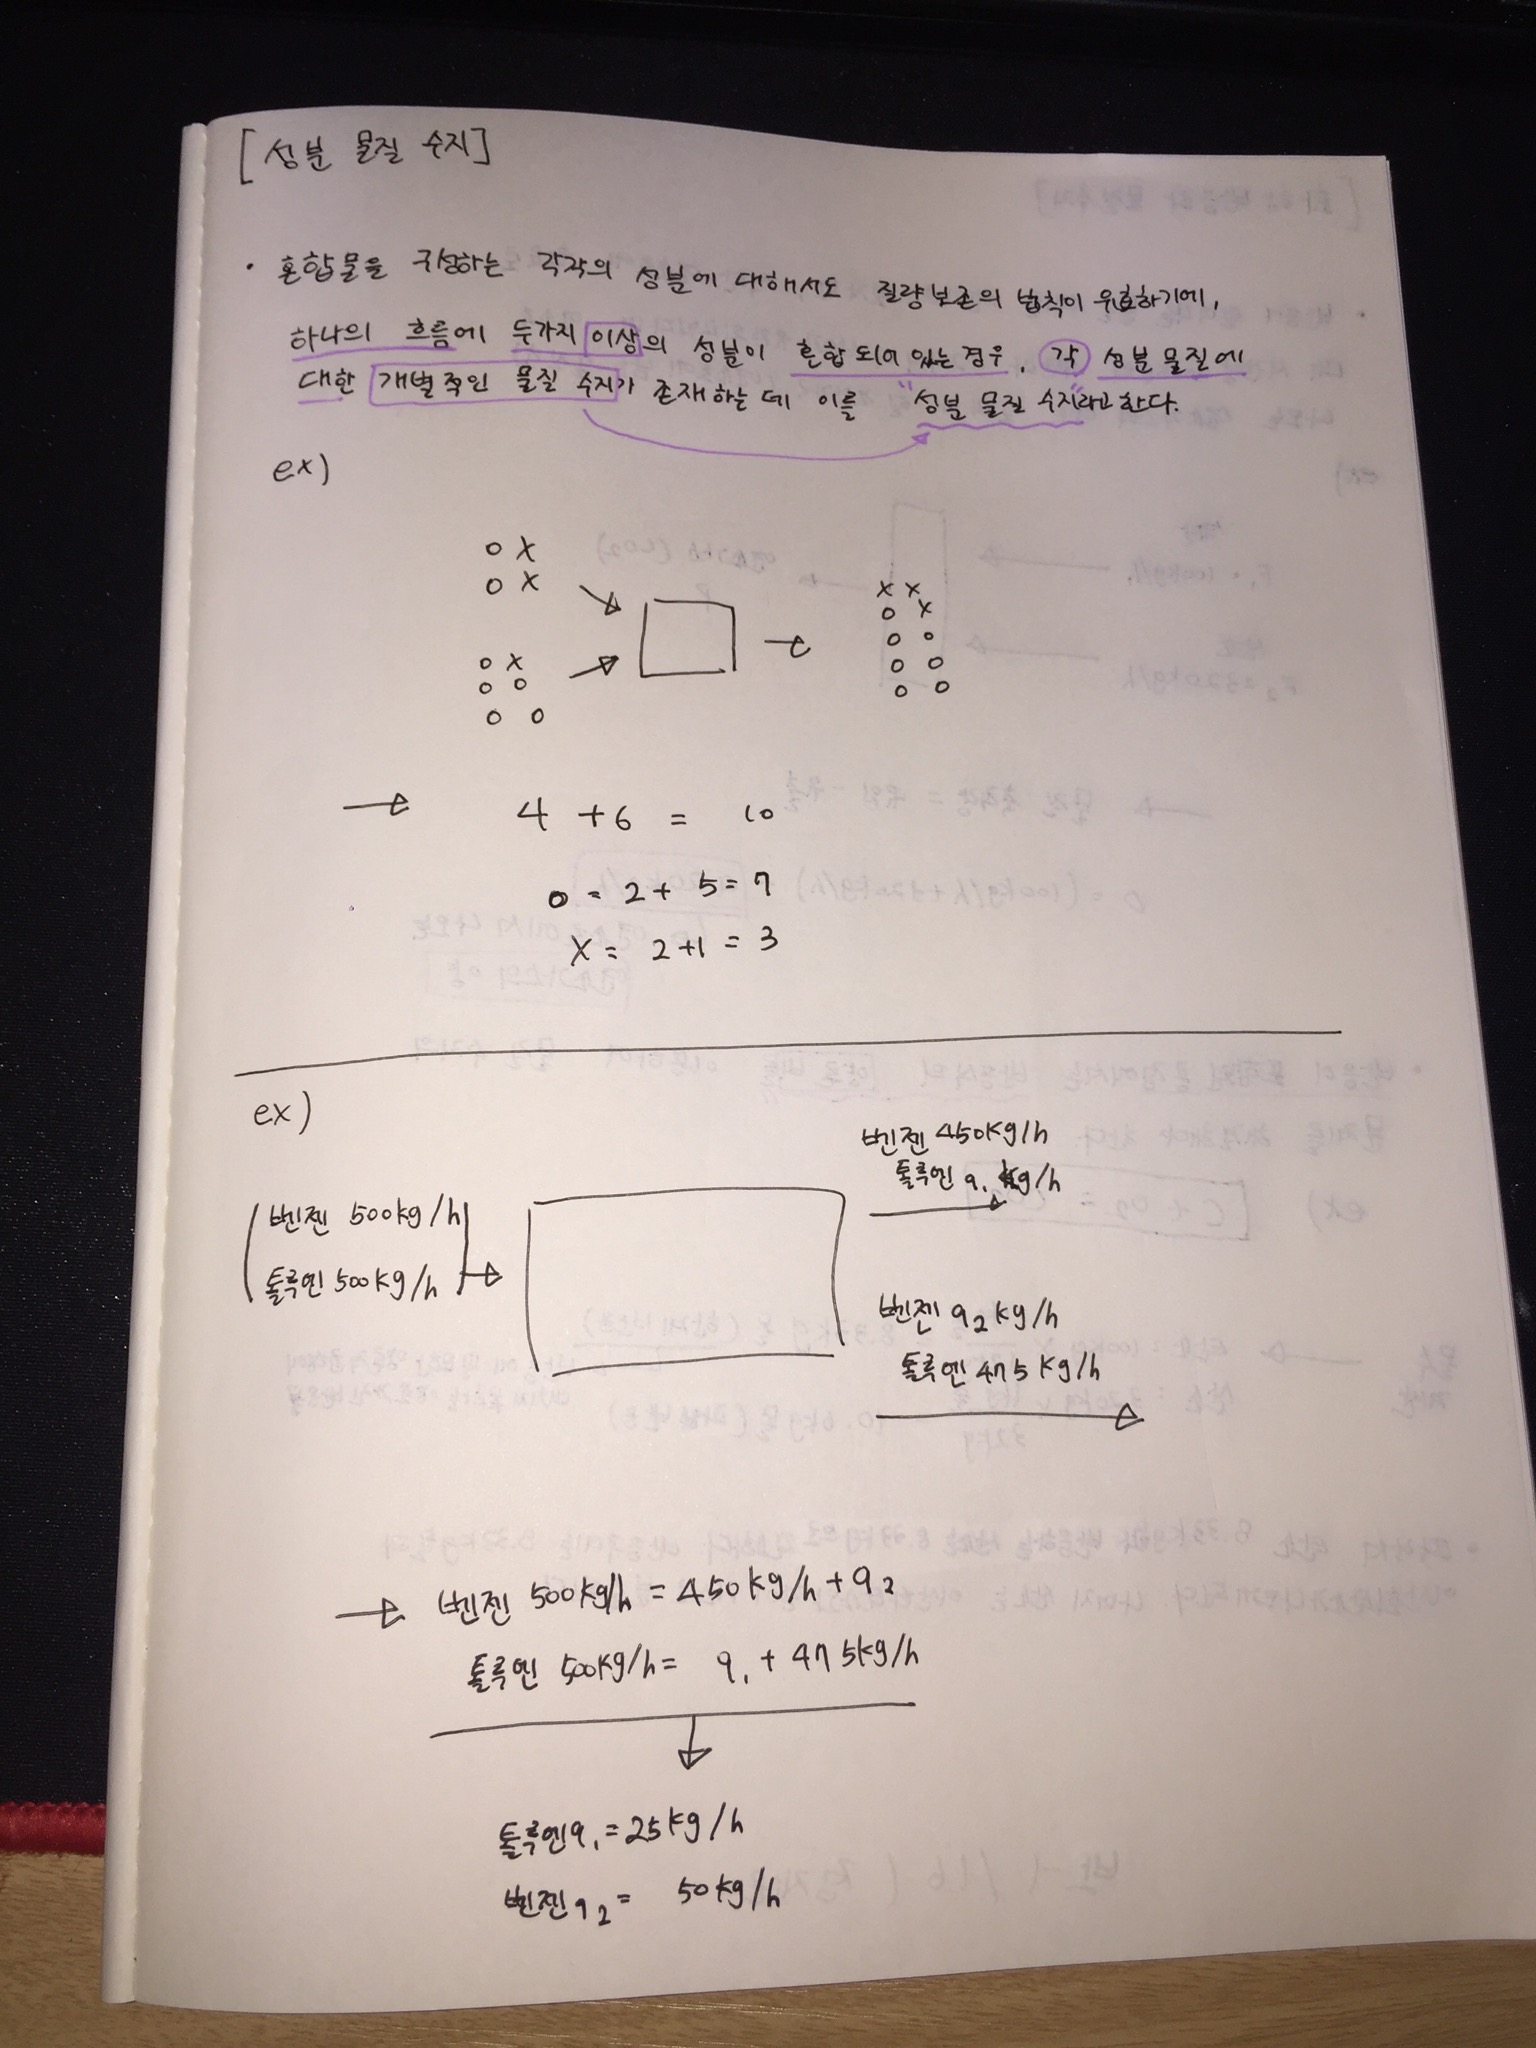 [성분 물질 수지]
· 혼합물을 구성하는 각각의 성분에 대해서도 질량보존의 법칙이 유효하기에,
하나의 흐름에 두가지 이상의 성분이 혼합 되어 있는 경우, 각 성분 물질에
대한 개별적인 물질 수지가 존재하는 데 이를 "성분 물질 수지"라고 한다.
ex)
o x
o x
o x
o o
o o
x x
o x
o o
o o
o o
→ 4 + 6 = 10
o = 2 + 5 = 7
x = 2 + 1 = 3
ex)
벤젠 500kg/h
톨루엔 500kg/h
벤젠 450kg/h
톨루엔 q₁ kg/h
벤젠 q₂ kg/h
톨루엔 475kg/h
→ 벤젠 500kg/h = 450kg/h + q₂
톨루엔 500kg/h = q₁ + 475kg/h
톨루엔 q₁ = 25kg/h
벤젠 q₂ = 50kg/h